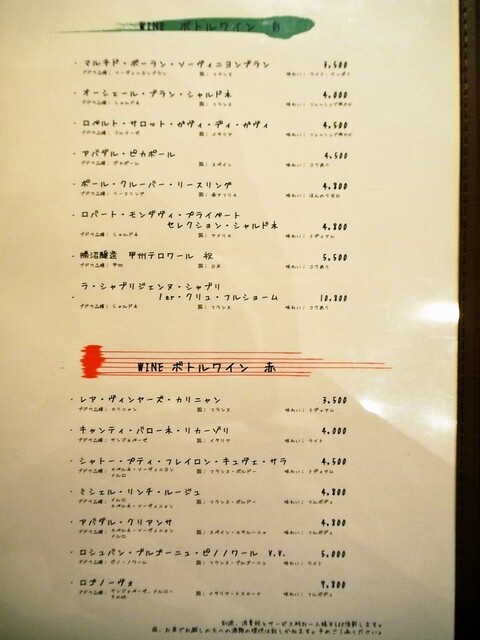 WINE ボトルワイン 白
・ マルキド・ボーラン・ソーヴィニヨンブラン 3,500
ブドウ品種: ソーヴィニヨンブラン 国: フランス 味わい:
・ オーシェール・ブラン・シャルドネ 4,000
ブドウ品種: シャルドネ 国: フランス 味わい:
・ ロベルト・サロット・ガヴィ・ディ・ガヴィ 4,500
ブドウ品種: コルテーゼ 国: イタリア 味わい:
・ アバダル・ピカポール 4,500
ブドウ品種: ピカポール 国: スペイン 味わい: コクあり
・ ポール・クルーバー・リースリング 4,800
ブドウ品種: リースリング 国: 南アフリカ 味わい: ほんのり甘口
・ ロバート・モンダヴィ・プライベート
セレクション・シャルドネ 4,800
ブドウ品種: シャルドネ 国: アメリカ 味わい: ミディアム
・ 勝沼醸造 甲州テロワール 祝 5,500
ブドウ品種: 甲州 国: 日本 味わい: コクあり
ラ・シャブリジェンヌ・シャブリ
・ 1er・クリュ・フルショーム 10,800
ブドウ品種: シャルドネ 国: フランス 味わい: コクあり
WINE ボトルワイン 赤
・ レア・ヴィンヤーズ・カリニャン 3,500
ブドウ品種: カリニャン 国: フランス 味わい: ミディアム
・ キャンティ・バローネ・リカーゾリ 4,000
ブドウ品種: サンジョベーゼ 国: イタリア 味わい: ライト
・ シャトー・プティ・フレイロン・キュヴェ・サラ 4,500
ブドウ品種: カベルネ・ソーヴィニヨン 国: フランス・ボルドー 味わい: ミディアム
メルロ
・ ミシェル・リンチ・ルージュ 4,800
ブドウ品種: メルロ 国: フランス・ボルドー 味わい: フルボディ
カベルネ・ソーヴィニヨン
・ アバダル・クリアンサ 4,800
ブドウ品種: カベルネ・ソーヴィニヨン 国: スペイン・カタルーニャ 味わい: フルボディ
メルロ
・ ロシュバン・ブルゴーニュ・ピノノワール V.V. 5,000
ブドウ品種: ピノ・ノワール 国: フランス・ブルゴーニュ 味わい: ライト
・ ロゴノーヴォ 9,800
ブドウ品種: サンジョベーゼ、メルロ 国: イタリア・トスカーナ 味わい: フルボディ
その他
別途、消費税とサービス料お一人様